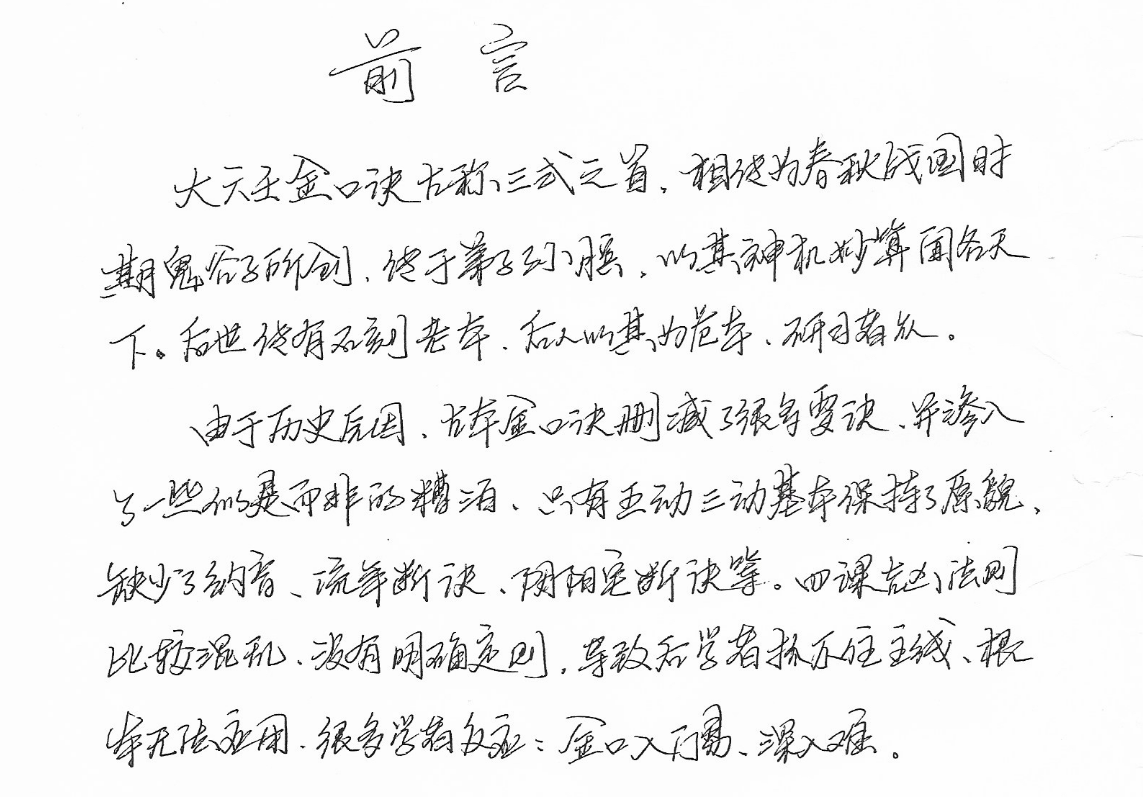 前言
大六壬金口诀古称三式之首，相传为春秋战国时
期鬼谷子所创，传于弟子孙膑，以其神机妙算闻名天
下。后世传有石刻老本，后人以其为范本，研习者众。
由于历史原因，古本金口诀删减了很多要诀，并渗入
了一些似是而非的糟泊，只有五动三动基本保持了原貌，
缺少了纳音、流年断诀、阴阳宅断诀等。四课吉凶法则
比较混乱、没有明确定则，导致后学者抓不住主线、根
本无法应用，很多学者反应：金口入门易、深入难。